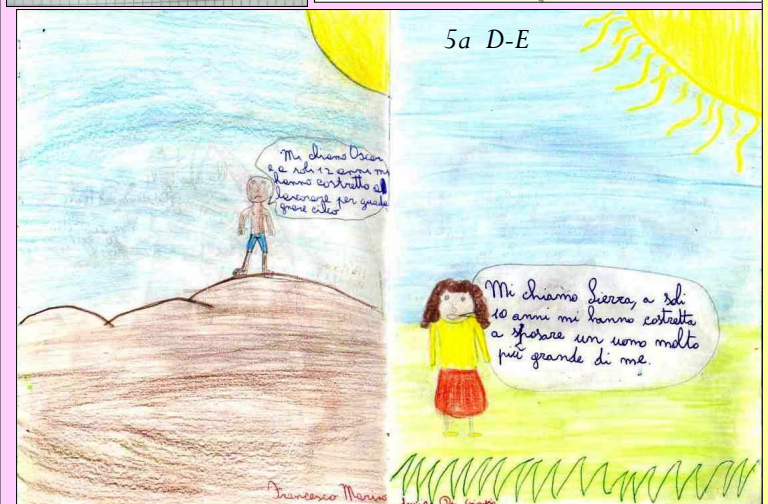 5a D-E
Mi chiamo Oscar
e a soli 12 anni mi
hanno costretto a
lavorare per guada
gnare cibo
Mi chiamo Sierra, a soli
10 anni mi hanno costretta
a sposare un uomo molto
più grande di me.
Francesco Marino